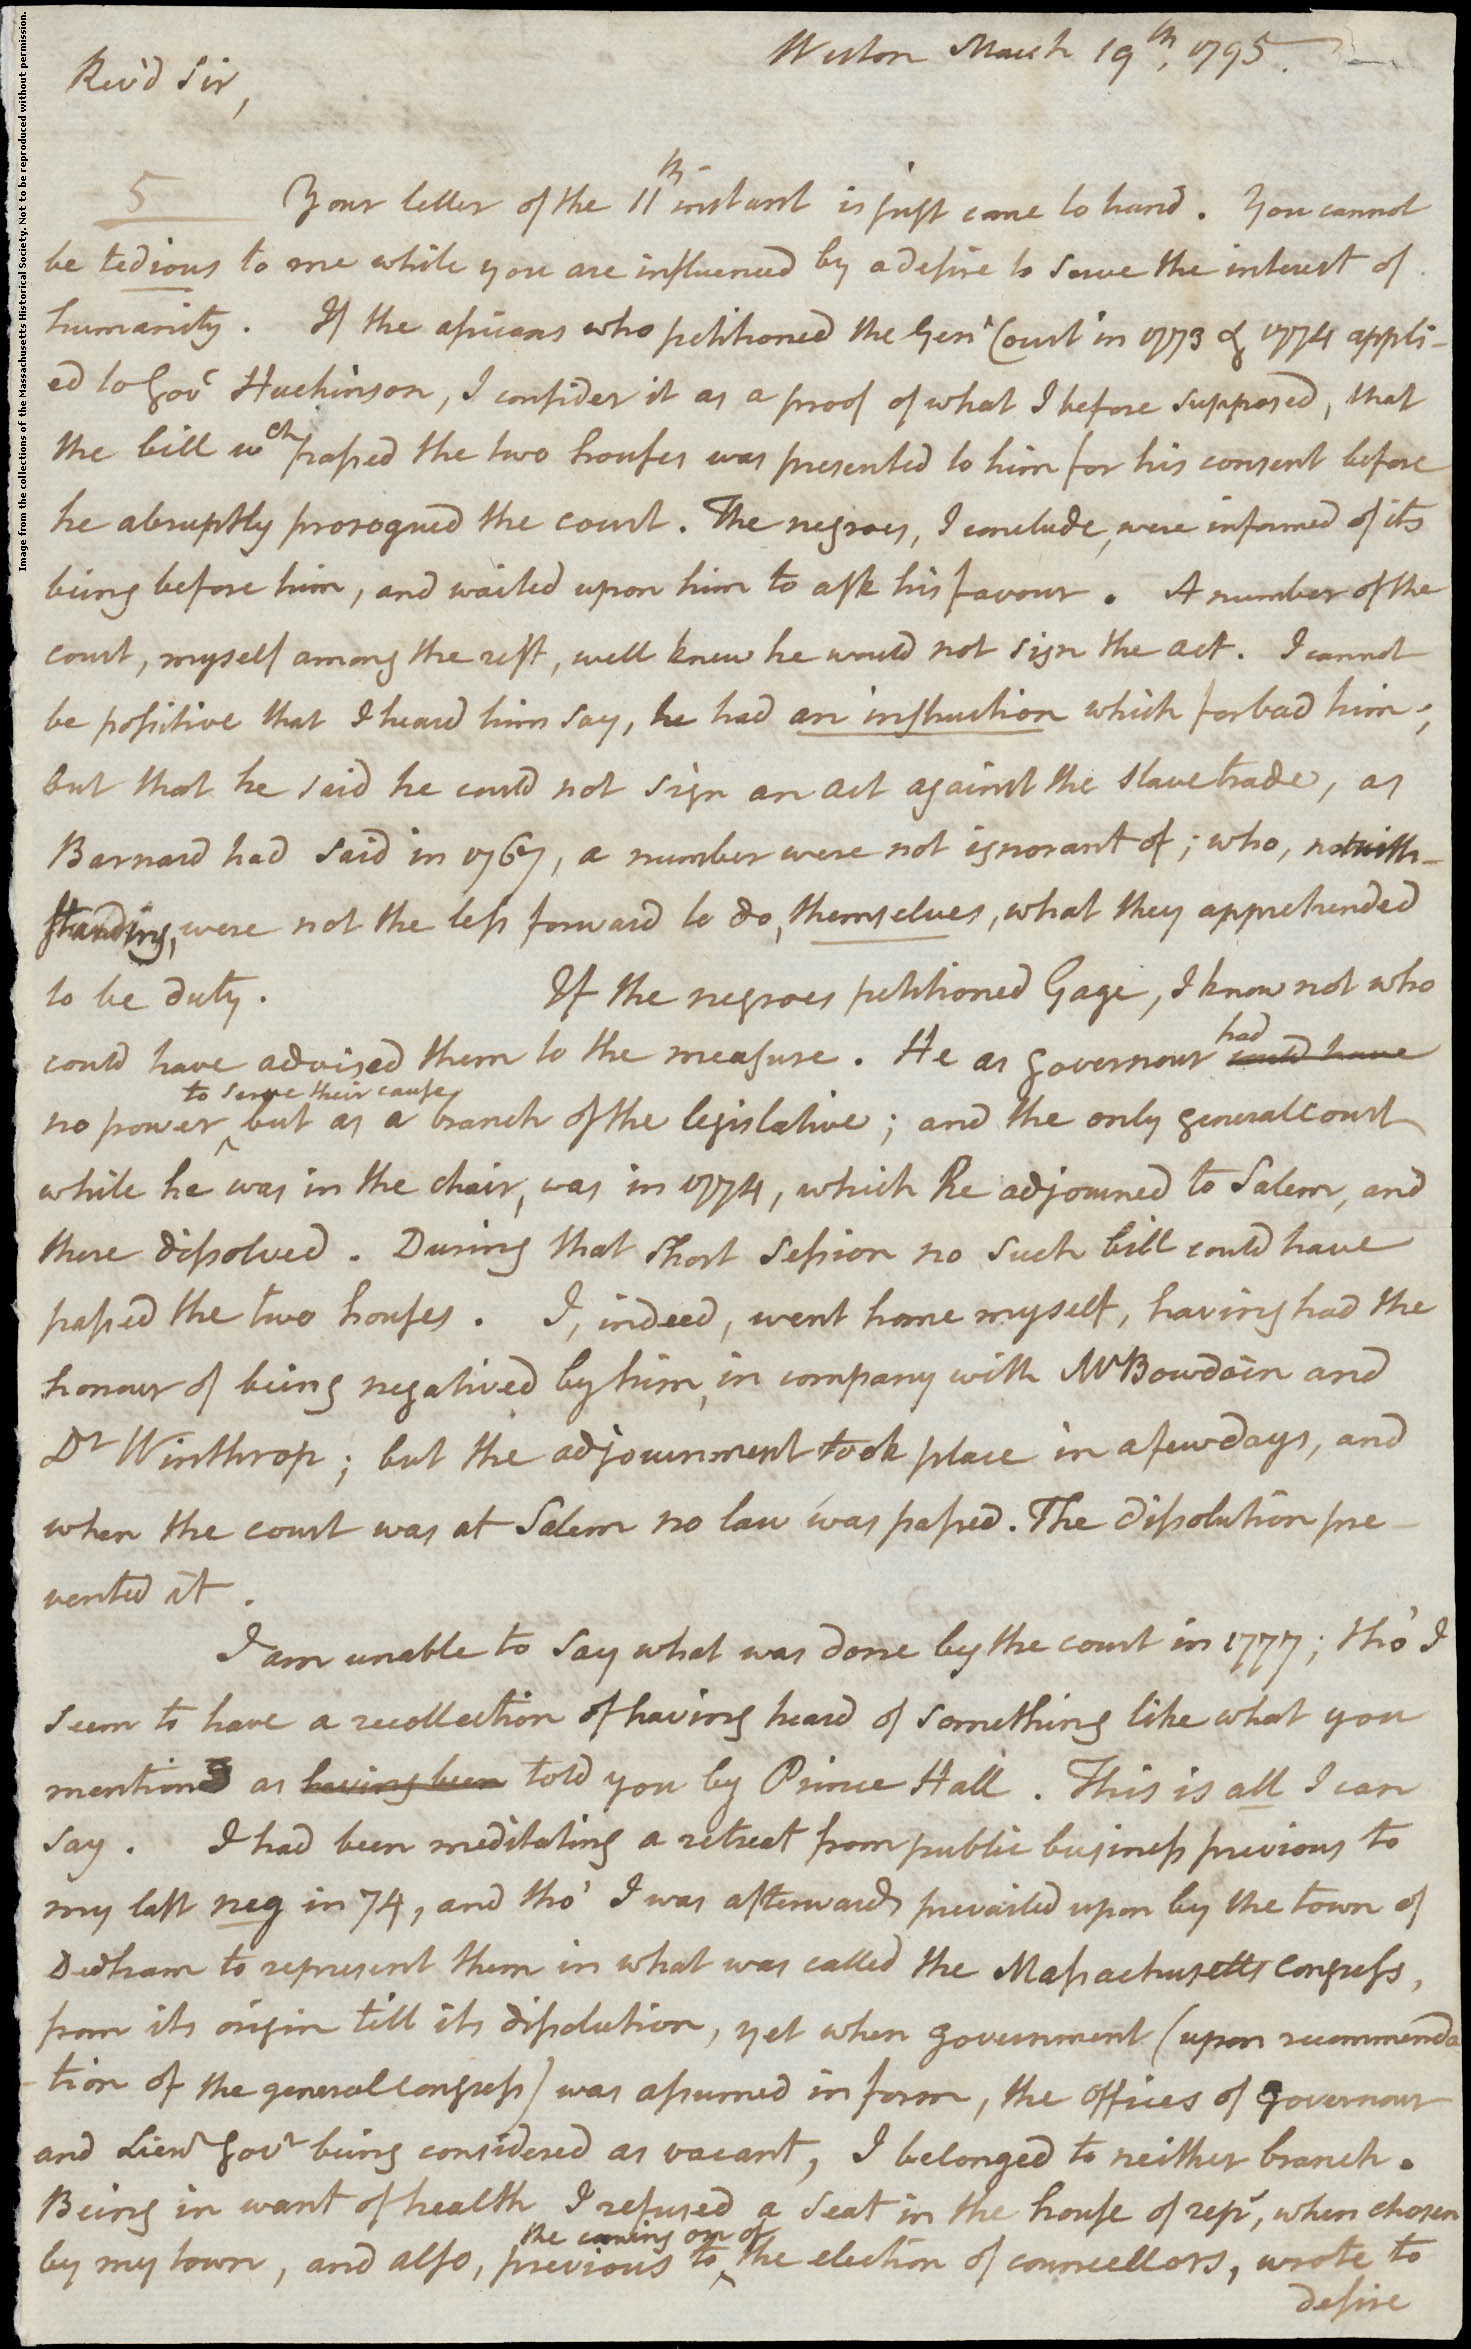 Image from the collections of the Massachusetts Historical Society. Not to be reproduced without permission.
Weston March 19th, 1795.
Rev'd Sir,
5
Your letter of the 11th instant is just come to hand. You cannot
be tedious to me while you are influenced by a desire to serve the interest of
humanity. If the africans who petitioned the Genl Court in 1773 & 1774 appli-
ed to Govr Huchinson, I consider it as a proof of what I before supposed, that
the bill wch passed the two houses was presented to him for his consent before
he abruptly prorogued the court. The negroes, I conclude, were informed of its
being before him, and waited upon him to ask his favour. A number of the
court, myself among the rest, well knew he would not sign the act. I cannot
be positive that I heard him say, he had an instruction which forbad him;
but that he said he could not sign an act against the slavetrade, as
Barnard had said in 1767, a number were not ignorant of; who, notwith-
standing, were not the less forward to do, themselves, what they apprehended
to be duty. If the negroes petitioned Gage, I know not who
could have advised them to the measure. He as governour could have had
no power to serve their cause but as a branch of the legislative; and the only general court
while he was in the chair, was in 1774, which he adjourned to Salem, and
there dissolved. During that short session no such bill could have
passed the two houses. I, indeed, went home myself, having had the
honour of being negatived by him, in company with Mr Bowdoin and
Dr Winthrop; but the adjournment took place in a few days, and
when the court was at Salem no law was passed. The dissolution pre-
vented it.
I am unable to say what was done by the court in 1777; tho' I
seem to have a recollection of having heard of something like what you
mention as having been told you by Prince Hall. This is all I can
say. I had been meditating a retreat from public business previous to
my last neg in 74, and tho' I was afterwards prevailed upon by the town of
Dedham to represent them in what was called the Massachusetts congress,
from its origin till its dissolution, yet when government (upon recommenda
-tion of the general congress) was assumed in form, the offices of governour
and Lieut Govr being considered as vacant, I belonged to neither branch.
Being in want of health I refused a seat in the house of repr, when chosen
by my town, and also, previous to the coming on of the election of councellors, wrote to
desire